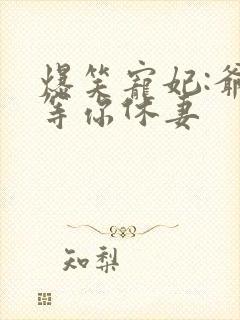 爆笑寵妃:爺
等你休妻
知梨